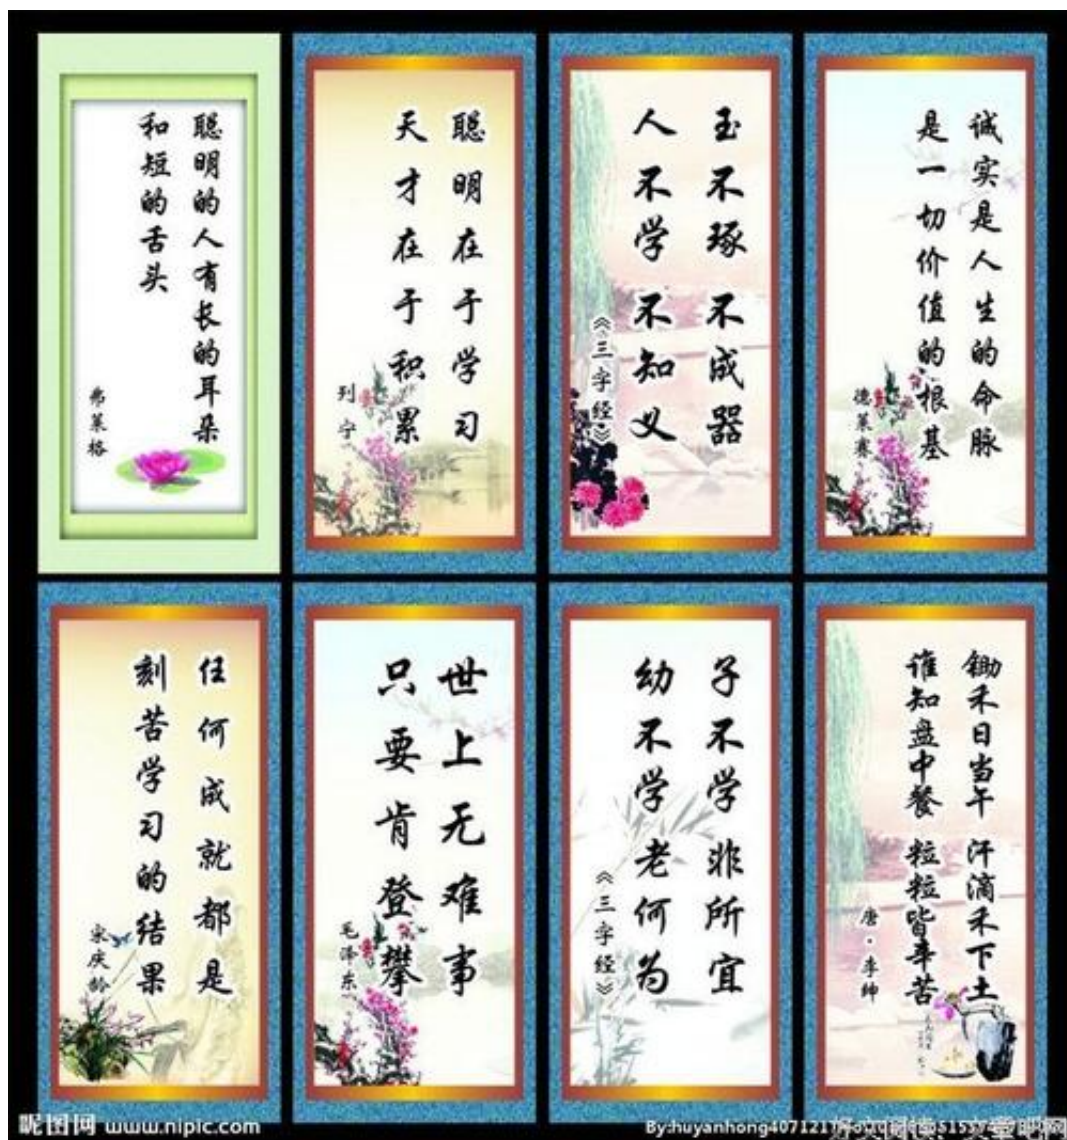 聪明的人有长的耳朵
和短的舌头
弗莱格
聪明在于学习
天才在于积累
列宁
玉不琢 不成器
人不学 不知义
《三字经》
诚实是人生的命脉
是一切价值的根基
德莱赛
任何成就都是
刻苦学习的结果
宋庆龄
世上无难事
只要肯登攀
毛泽东
子不学 非所宜
幼不学 老何为
《三字经》
锄禾日当午 汗滴禾下土
谁知盘中餐 粒粒皆辛苦
唐·李绅
昵图网 www.nipic.com
By:huyanhong407121